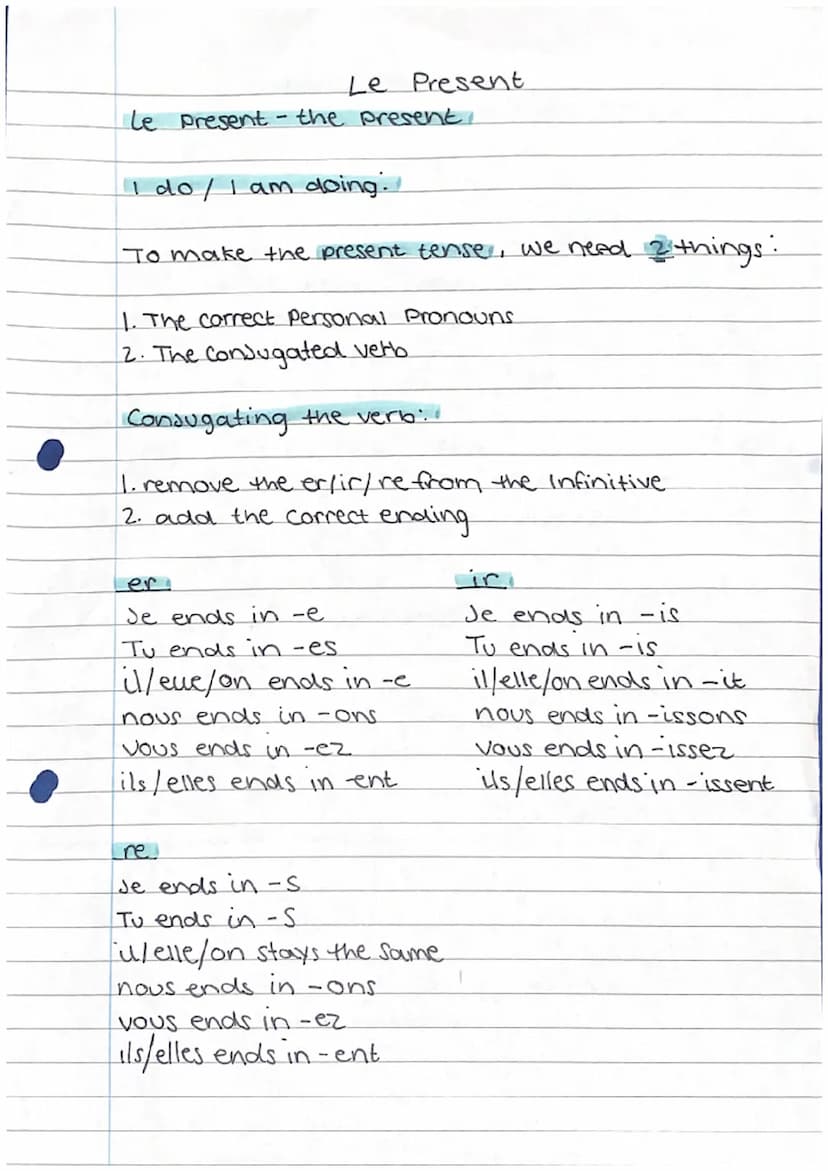 Le Present
Le present - the present
I do / I am doing:
To make the present tense, we need 2 things:
1. The correct Personal Pronouns
2. The Conjugated verb
Conjugating the verb:
1. remove the er/ir/re from the Infinitive
2. add the correct ending
er
Je ends in -e
Tu ends in -es
il/elle/on ends in -e
nous ends in -ons
vous ends in -ez
ils/elles ends in -ent
ir
Je ends in -is
Tu ends in -is
il/elle/on ends in -it
nous ends in -issons
vous ends in -issez
ils/elles ends in -issent
re
Je ends in -s
Tu ends in -s
il/elle/on stays the same
nous ends in -ons
vous ends in -ez
ils/elles ends in -ent